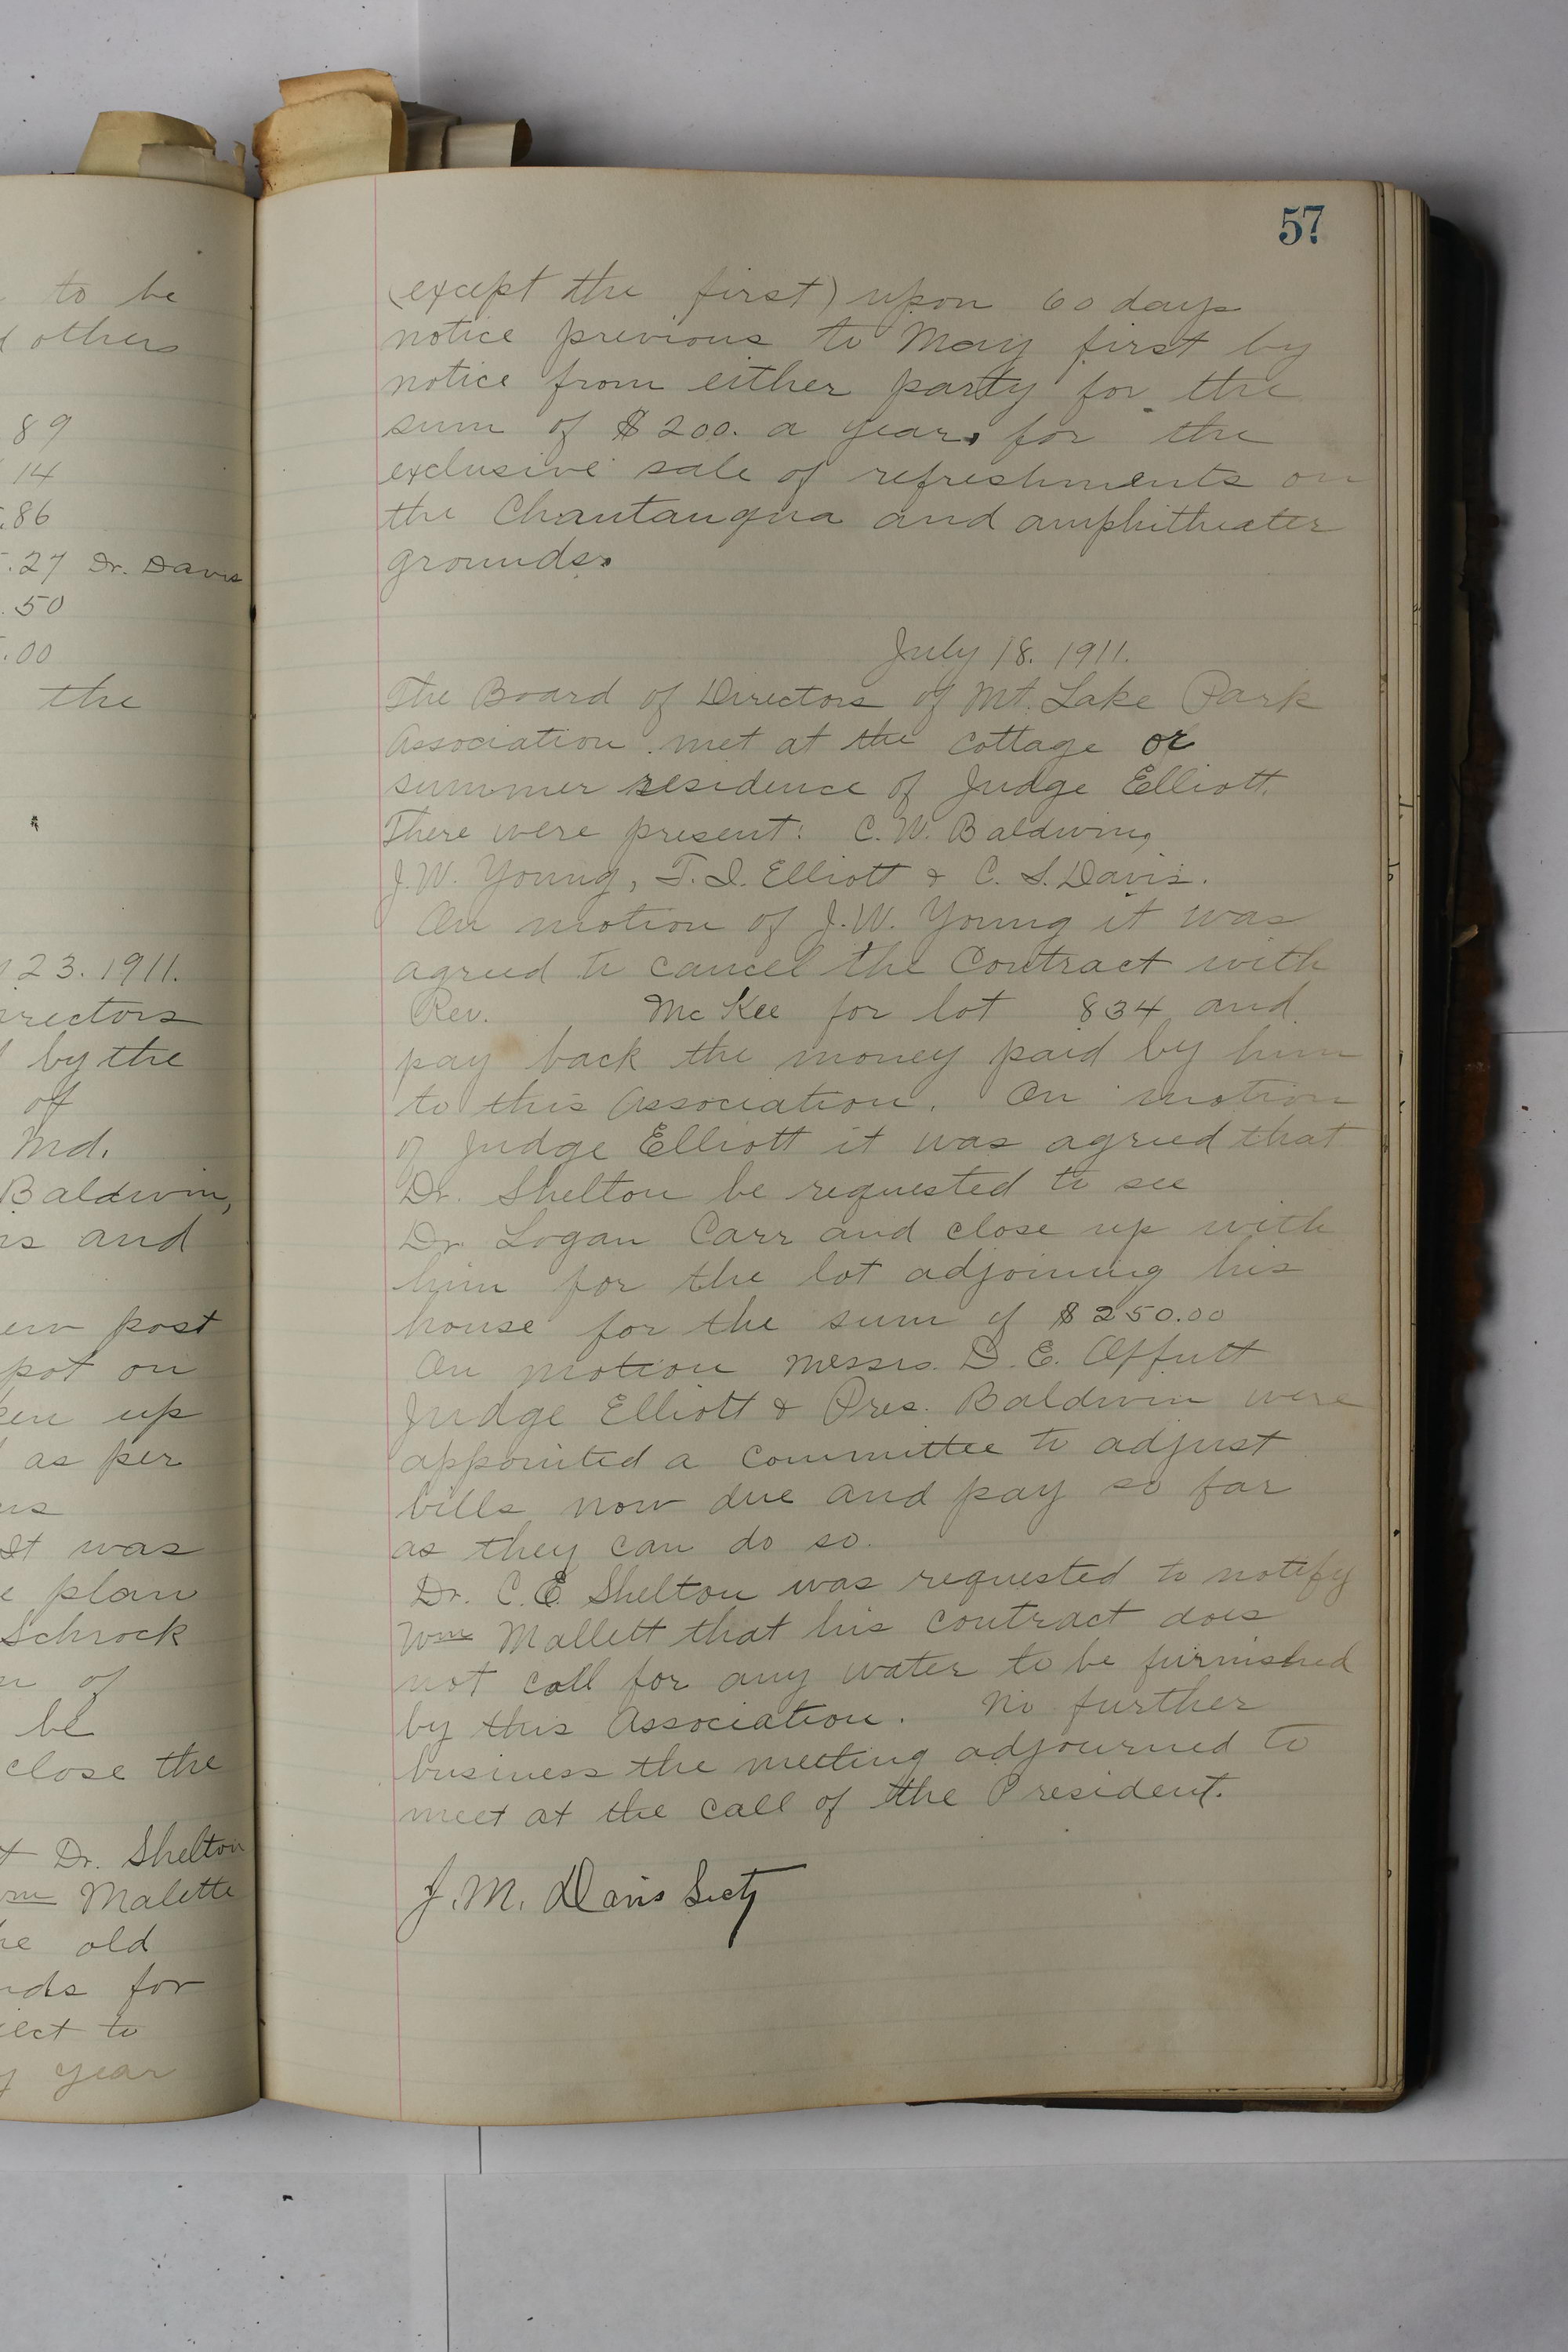 to be
others
89
14
.86
.27 Dr. Davis
.50
.00
the
23. 1911.
rectors
by the
of
Md.
Baldwin,
is and
post
pot on
up
as per
It was
plan
Schrock
of
be
close the
Dr. Shelton
Malette
old
for
to
year
57
(except the first) upon 60 days
notice previous to May first by
notice from either party for the
sum of $200. a year, for the
exclusive sale of refreshments on
the Chautauqua and amphitheater
grounds.
July 18. 1911.
The Board of Directors of Mt. Lake Park
Association met at the cottage or
summer residence of Judge Elliott.
There were present: C. W. Baldwing
J. W. Young, T. I. Elliott & C. S. Davis.
On motion of J. W. Young it was
agreed to cancel the Contract with
Rev. McKee for lot 834 and
pay back the money paid by him
to this Association. On motion
of Judge Elliott it was agreed that
Dr. Shelton be requested to see
Dr. Logan Carr and close up with
him for the lot adjoining his
house for the sum of $250.00
On motion Messrs. D. E. Offutt
Judge Elliott & Pres. Baldwin were
appointed a Committee to adjust
bills now due and pay so far
as they can do so.
Dr. C. E. Shelton was requested to notify
Wm Mallett that his contract does
not call for any water to be furnished
by this Association. No further
business the meeting adjourned to
meet at the call of the President.
J. M. Davis Secty